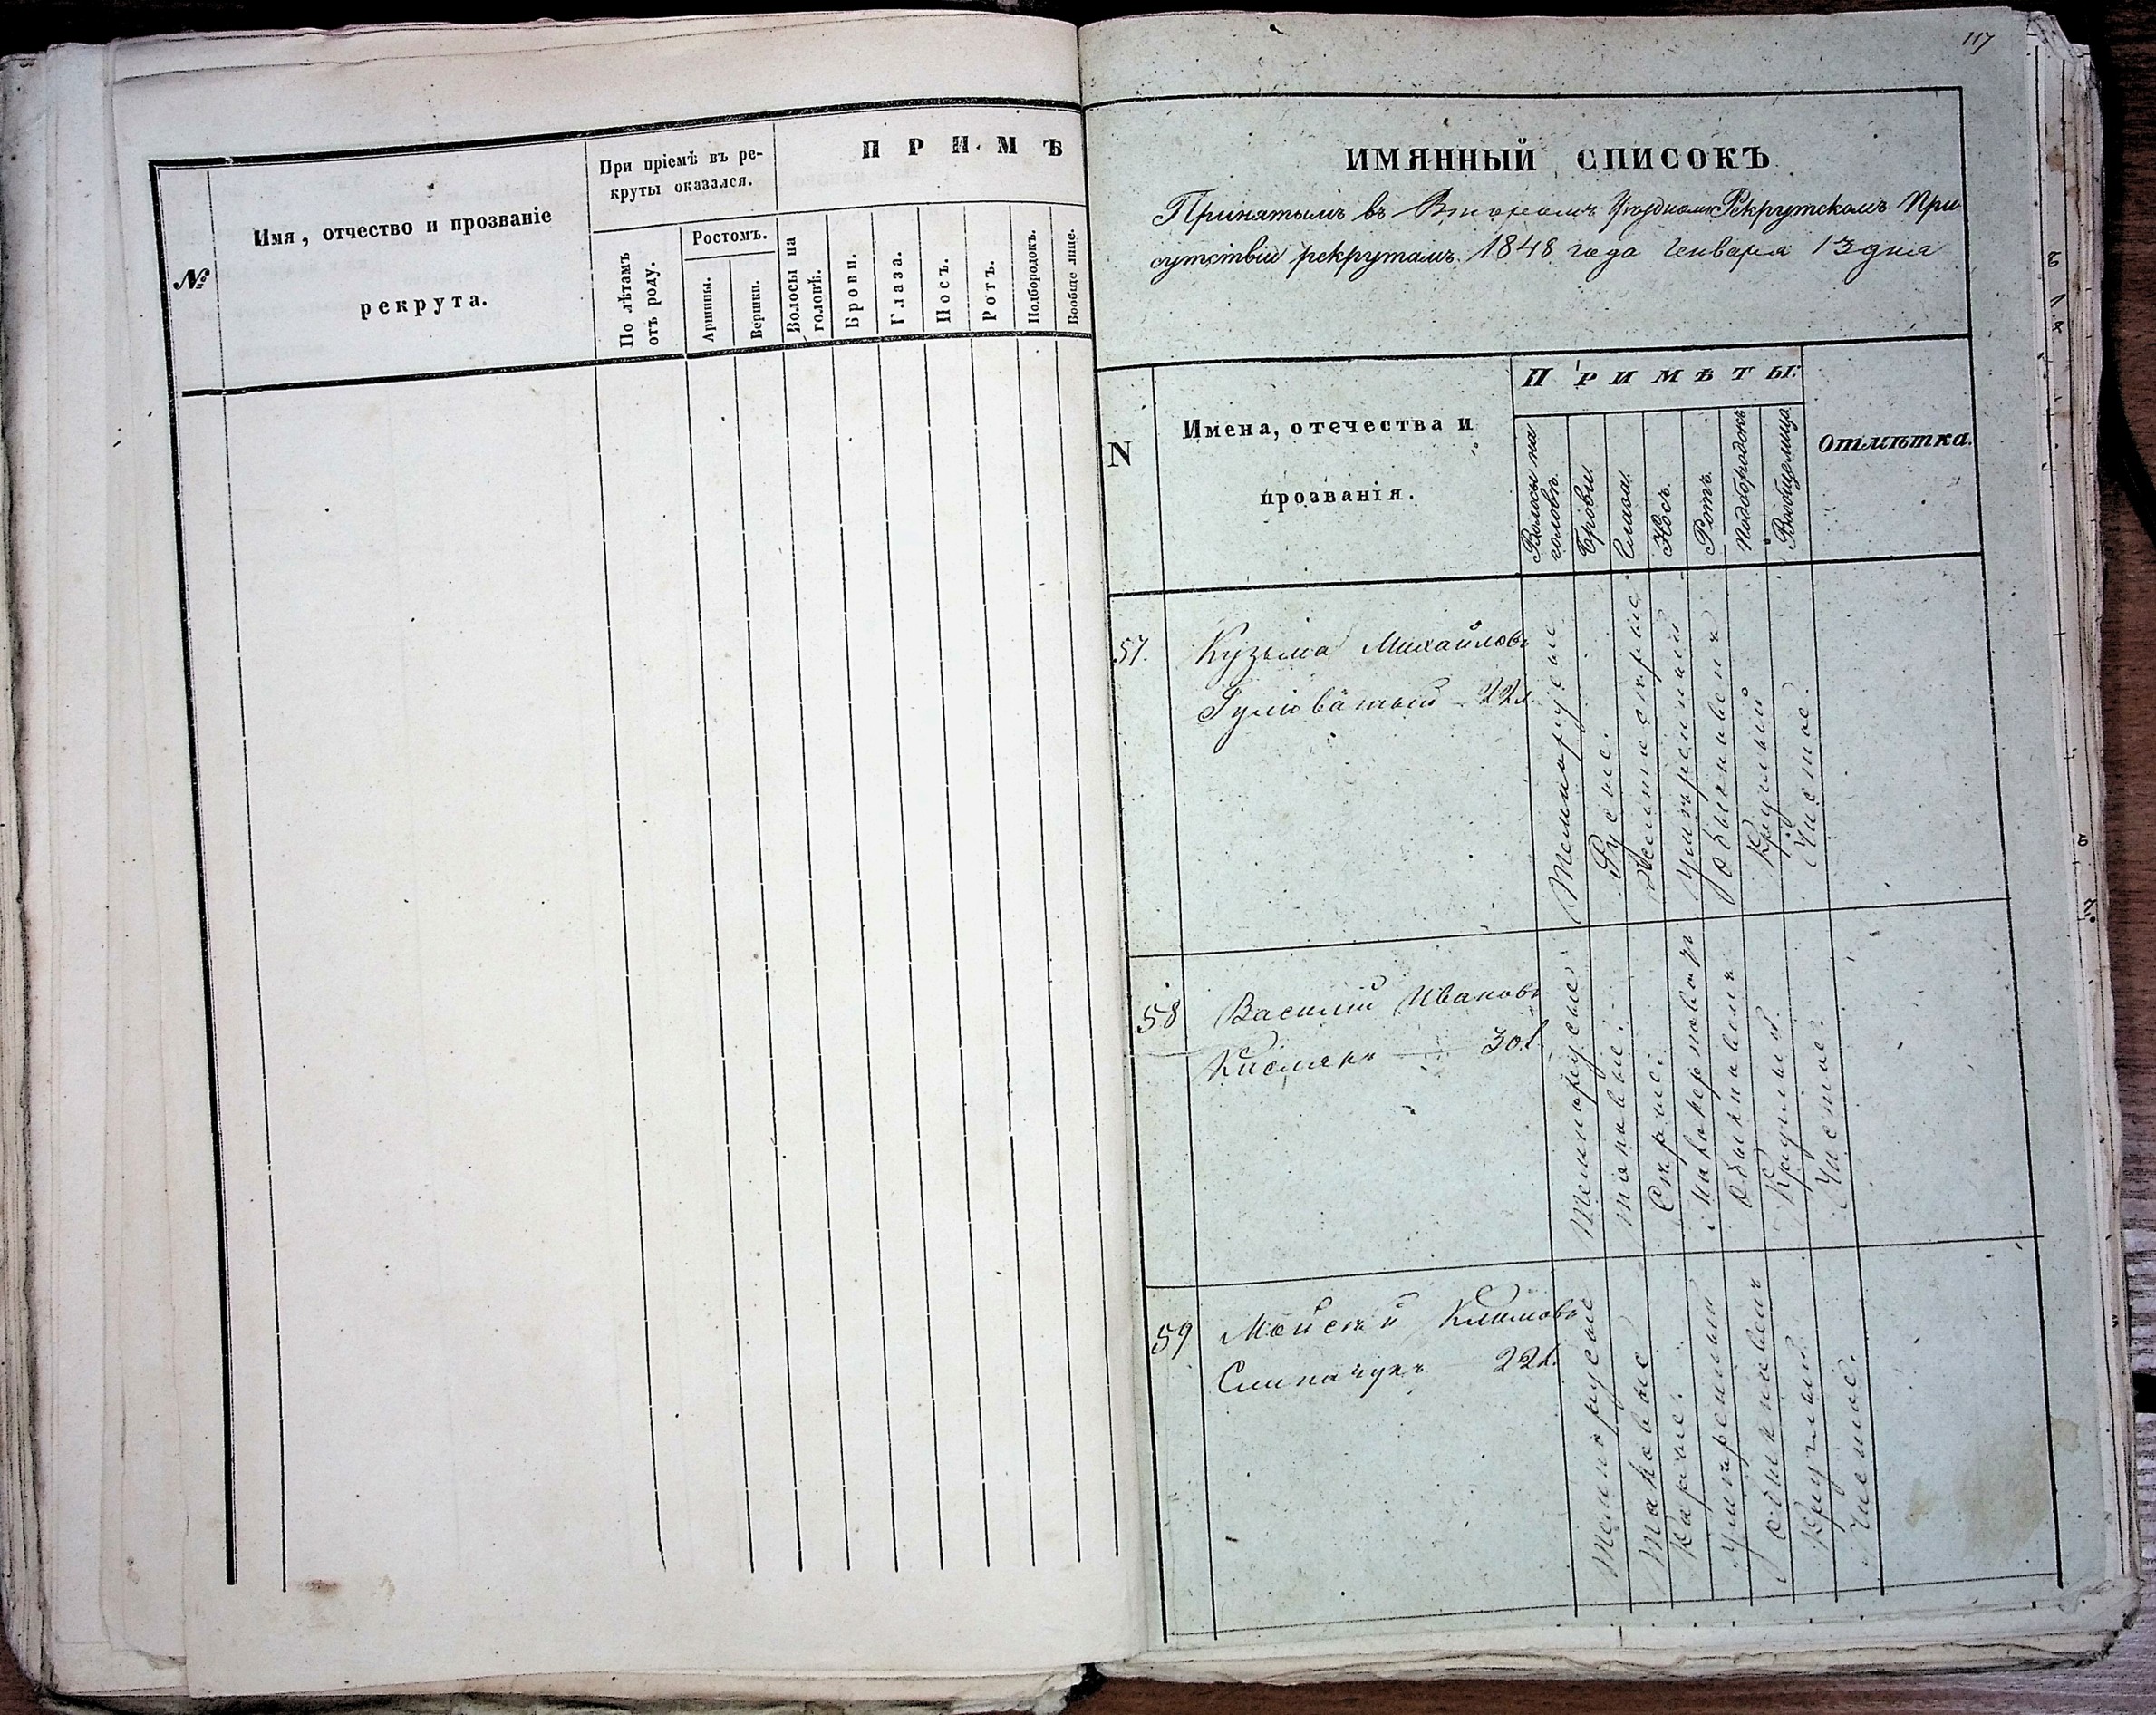 №
Имя, отчество и прозваніе
рекрута.
При пріемѣ въ ре-
круты оказался.
По лѣтамъ
отъ роду.
Ростомъ.
Аршины.
Вершки.
ПРИМѢ
Волосы на
головѣ.
Брови.
Глаза.
Носъ.
Ротъ.
Подбородокъ.
Вообще лице.
117
ИМЯННЫЙ СПИСОКЪ
Принятымъ въ Уѣздномъ Рекрутскомъ При
сутствіи рекрутамъ 1848 года Генваря 13 дня
N
Имена, отечества и
прозванія.
ПРИМѢТЫ:
Волосы на
головѣ.
Брови.
Глаза.
Носъ.
Ротъ.
Подбородокъ
Вообще лице
Отмѣтка.
57. Кузьма Михайловъ
22 л.
Темнорусые
Русые.
Желтосѣрые
Умѣренный
Обыкновен
Круглый
Чистое.
58 Василій Ивановъ
30 л.
Темнорусые
таковые.
Сѣрые.
Обыкновен
Круглый.
Чистое.
59 Мойсѣй Климовъ
22 л.
Темнорусые
Таковые
Каріе.
Умѣренный
Обыкновен
Круглый
Чистое.